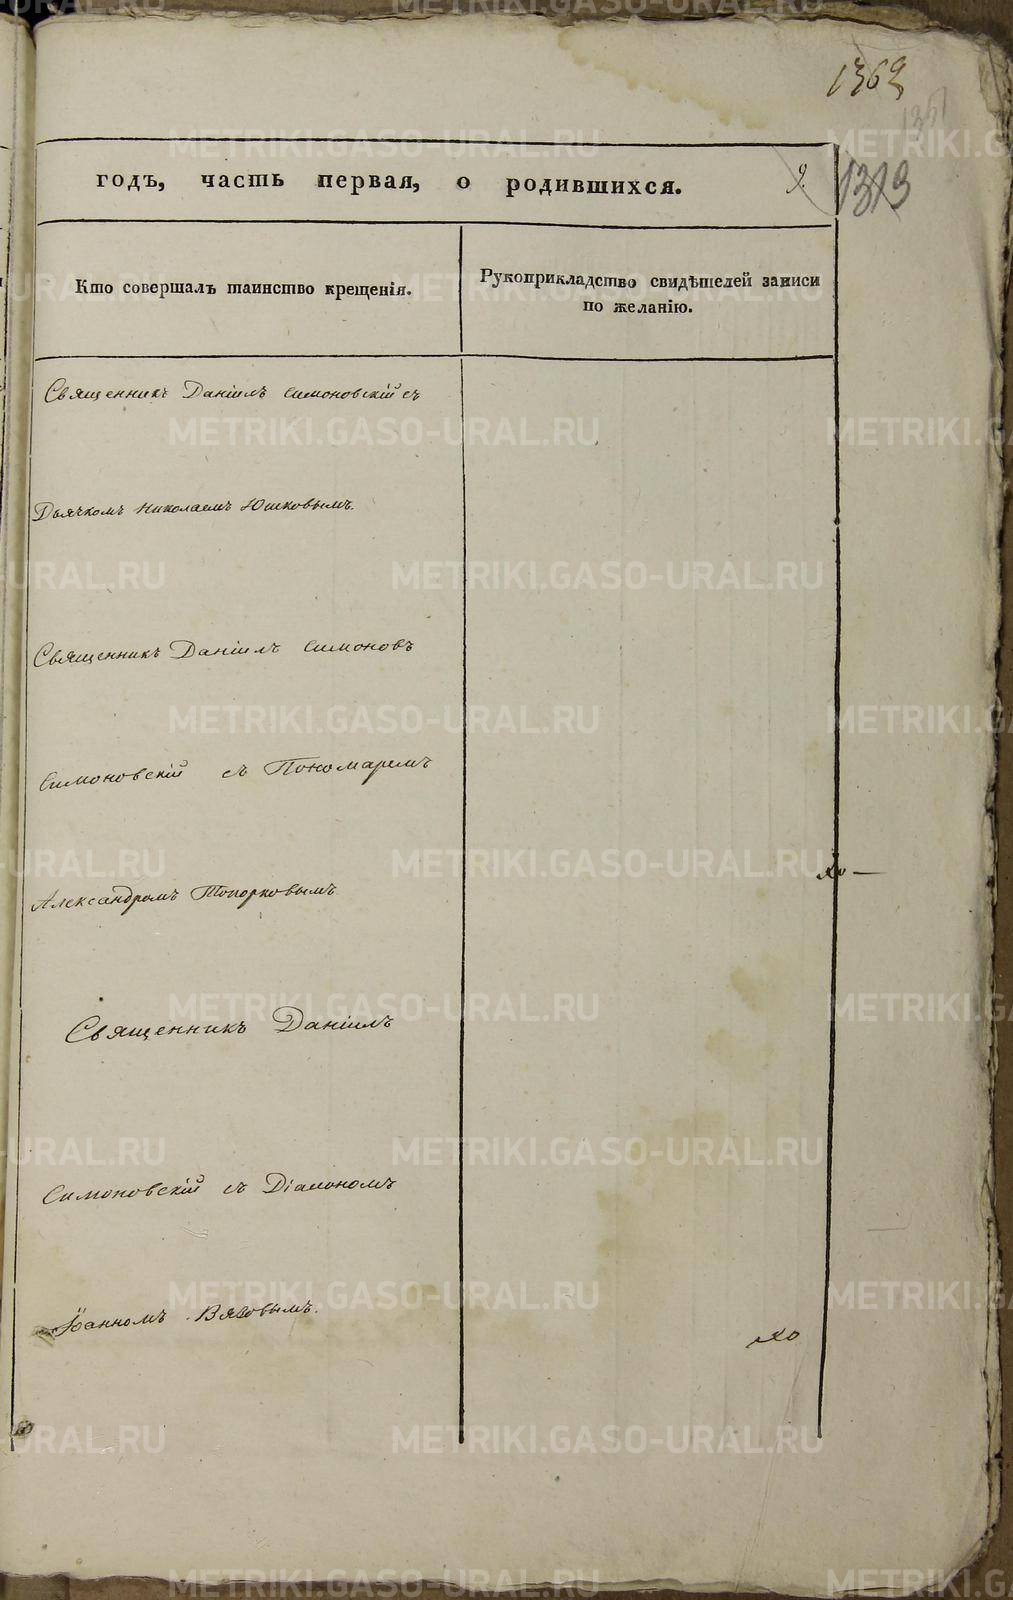 1369
1351
годъ, часть первая, о родившихся.
9.
1313
Кто совершалъ таинство крещенія.
Рукоприкладство свидѣтелей записи
по желанію.
Священникъ Даніилъ Симоновскій съ
Дьячкомъ Николаемъ Юшковымъ.
Священникъ Даніилъ Симоновъ
Симоновскій съ Пономаремъ
Александромъ Топорковымъ
Священникъ Даніилъ
Симоновскій съ Діакономъ
Іоанномъ Вяловымъ.
METRIKI.GASO-URAL.RU